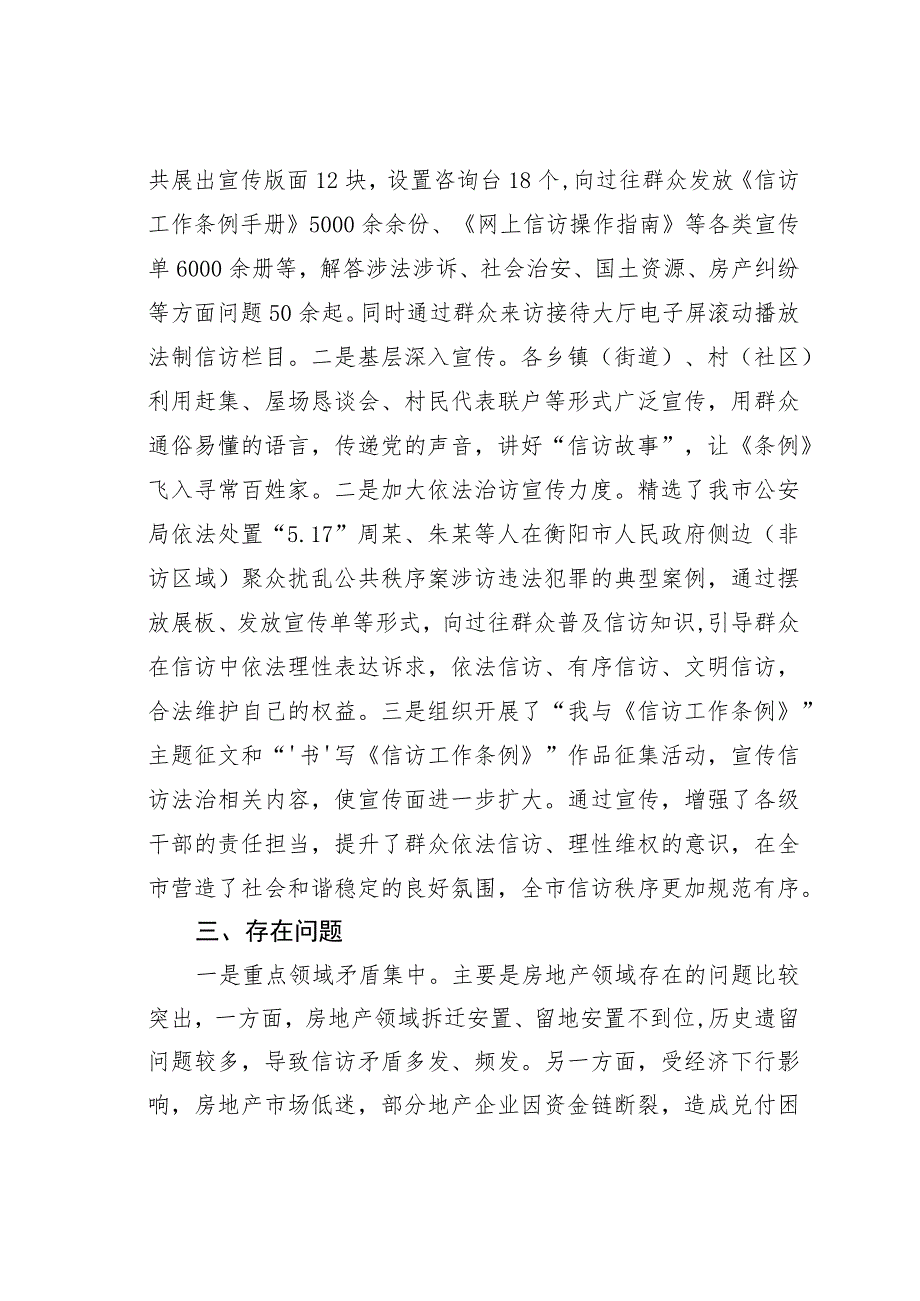 共展出宣传版面12块，设置咨询台18个,向过往群众发放《信访
工作条例手册》5000余余份、《网上信访操作指南》等各类宣传
单6000余册等，解答涉法涉诉、社会治安、国土资源、房产纠纷
等方面问题50余起。同时通过群众来访接待大厅电子屏滚动播放
法制信访栏目。二是基层深入宣传。各乡镇（街道）、村（社区）
利用赶集、屋场恳谈会、村民代表联户等形式广泛宣传，用群众
通俗易懂的语言，传递党的声音，讲好“信访故事”，让《条例》
飞入寻常百姓家。二是加大依法治访宣传力度。精选了我市公安
局依法处置“5.17”周某、朱某等人在衡阳市人民政府侧边（非
访区域）聚众扰乱公共秩序案涉访违法犯罪的典型案例，通过摆
放展板、发放宣传单等形式，向过往群众普及信访知识,引导群众
在信访中依法理性表达诉求，依法信访、有序信访、文明信访，
合法维护自己的权益。三是组织开展了“我与《信访工作条例》”
主题征文和“'书'写《信访工作条例》”作品征集活动，宣传信
访法治相关内容，使宣传面进一步扩大。通过宣传，增强了各级
干部的责任担当，提升了群众依法信访、理性维权的意识，在全
市营造了社会和谐稳定的良好氛围，全市信访秩序更加规范有序。
三、存在问题
一是重点领域矛盾集中。主要是房地产领域存在的问题比较
突出，一方面，房地产领域拆迁安置、留地安置不到位,历史遗留
问题较多，导致信访矛盾多发、频发。另一方面，受经济下行影
响，房地产市场低迷，部分地产企业因资金链断裂，造成兑付困